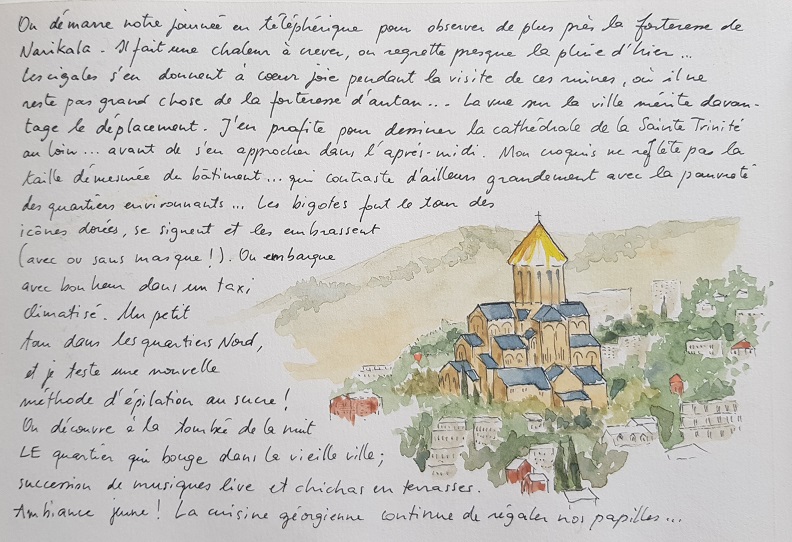 On démarre notre journée en téléphérique pour observer de plus près la forteresse de
Narikala. Il fait une chaleur à crever, on regrette presque la pluie d'hier...
Les cigales s'en donnent à coeur joie pendant la visite de ces ruines, où il ne
reste pas grand chose de la forteresse d'antan... La vue sur la ville mérite davan-
tage le déplacement. J'en profite pour dessiner la cathédrale de la Sainte Trinité
au loin... avant de s'en approcher dans l'après-midi. Mon croquis ne reflète pas la
taille démesurée du bâtiment... qui contraste d'ailleurs grandement avec la pauvreté
des quartiers environnants... Les bigotes font le tour des
icônes dorées, se signent et les embrassent
(avec ou sans masque !). On embarque
avec bonheur dans un taxi
climatisé. Un petit
tour dans les quartiers Nord,
et je teste une nouvelle
méthode d'épilation au sucre !
On découvre à la tombée de la nuit
LE quartier qui bouge dans la vieille ville ;
succession de musiques live et chichas en terrasses.
Ambiance jeune ! La cuisine géorgienne continue de régaler nos papilles...